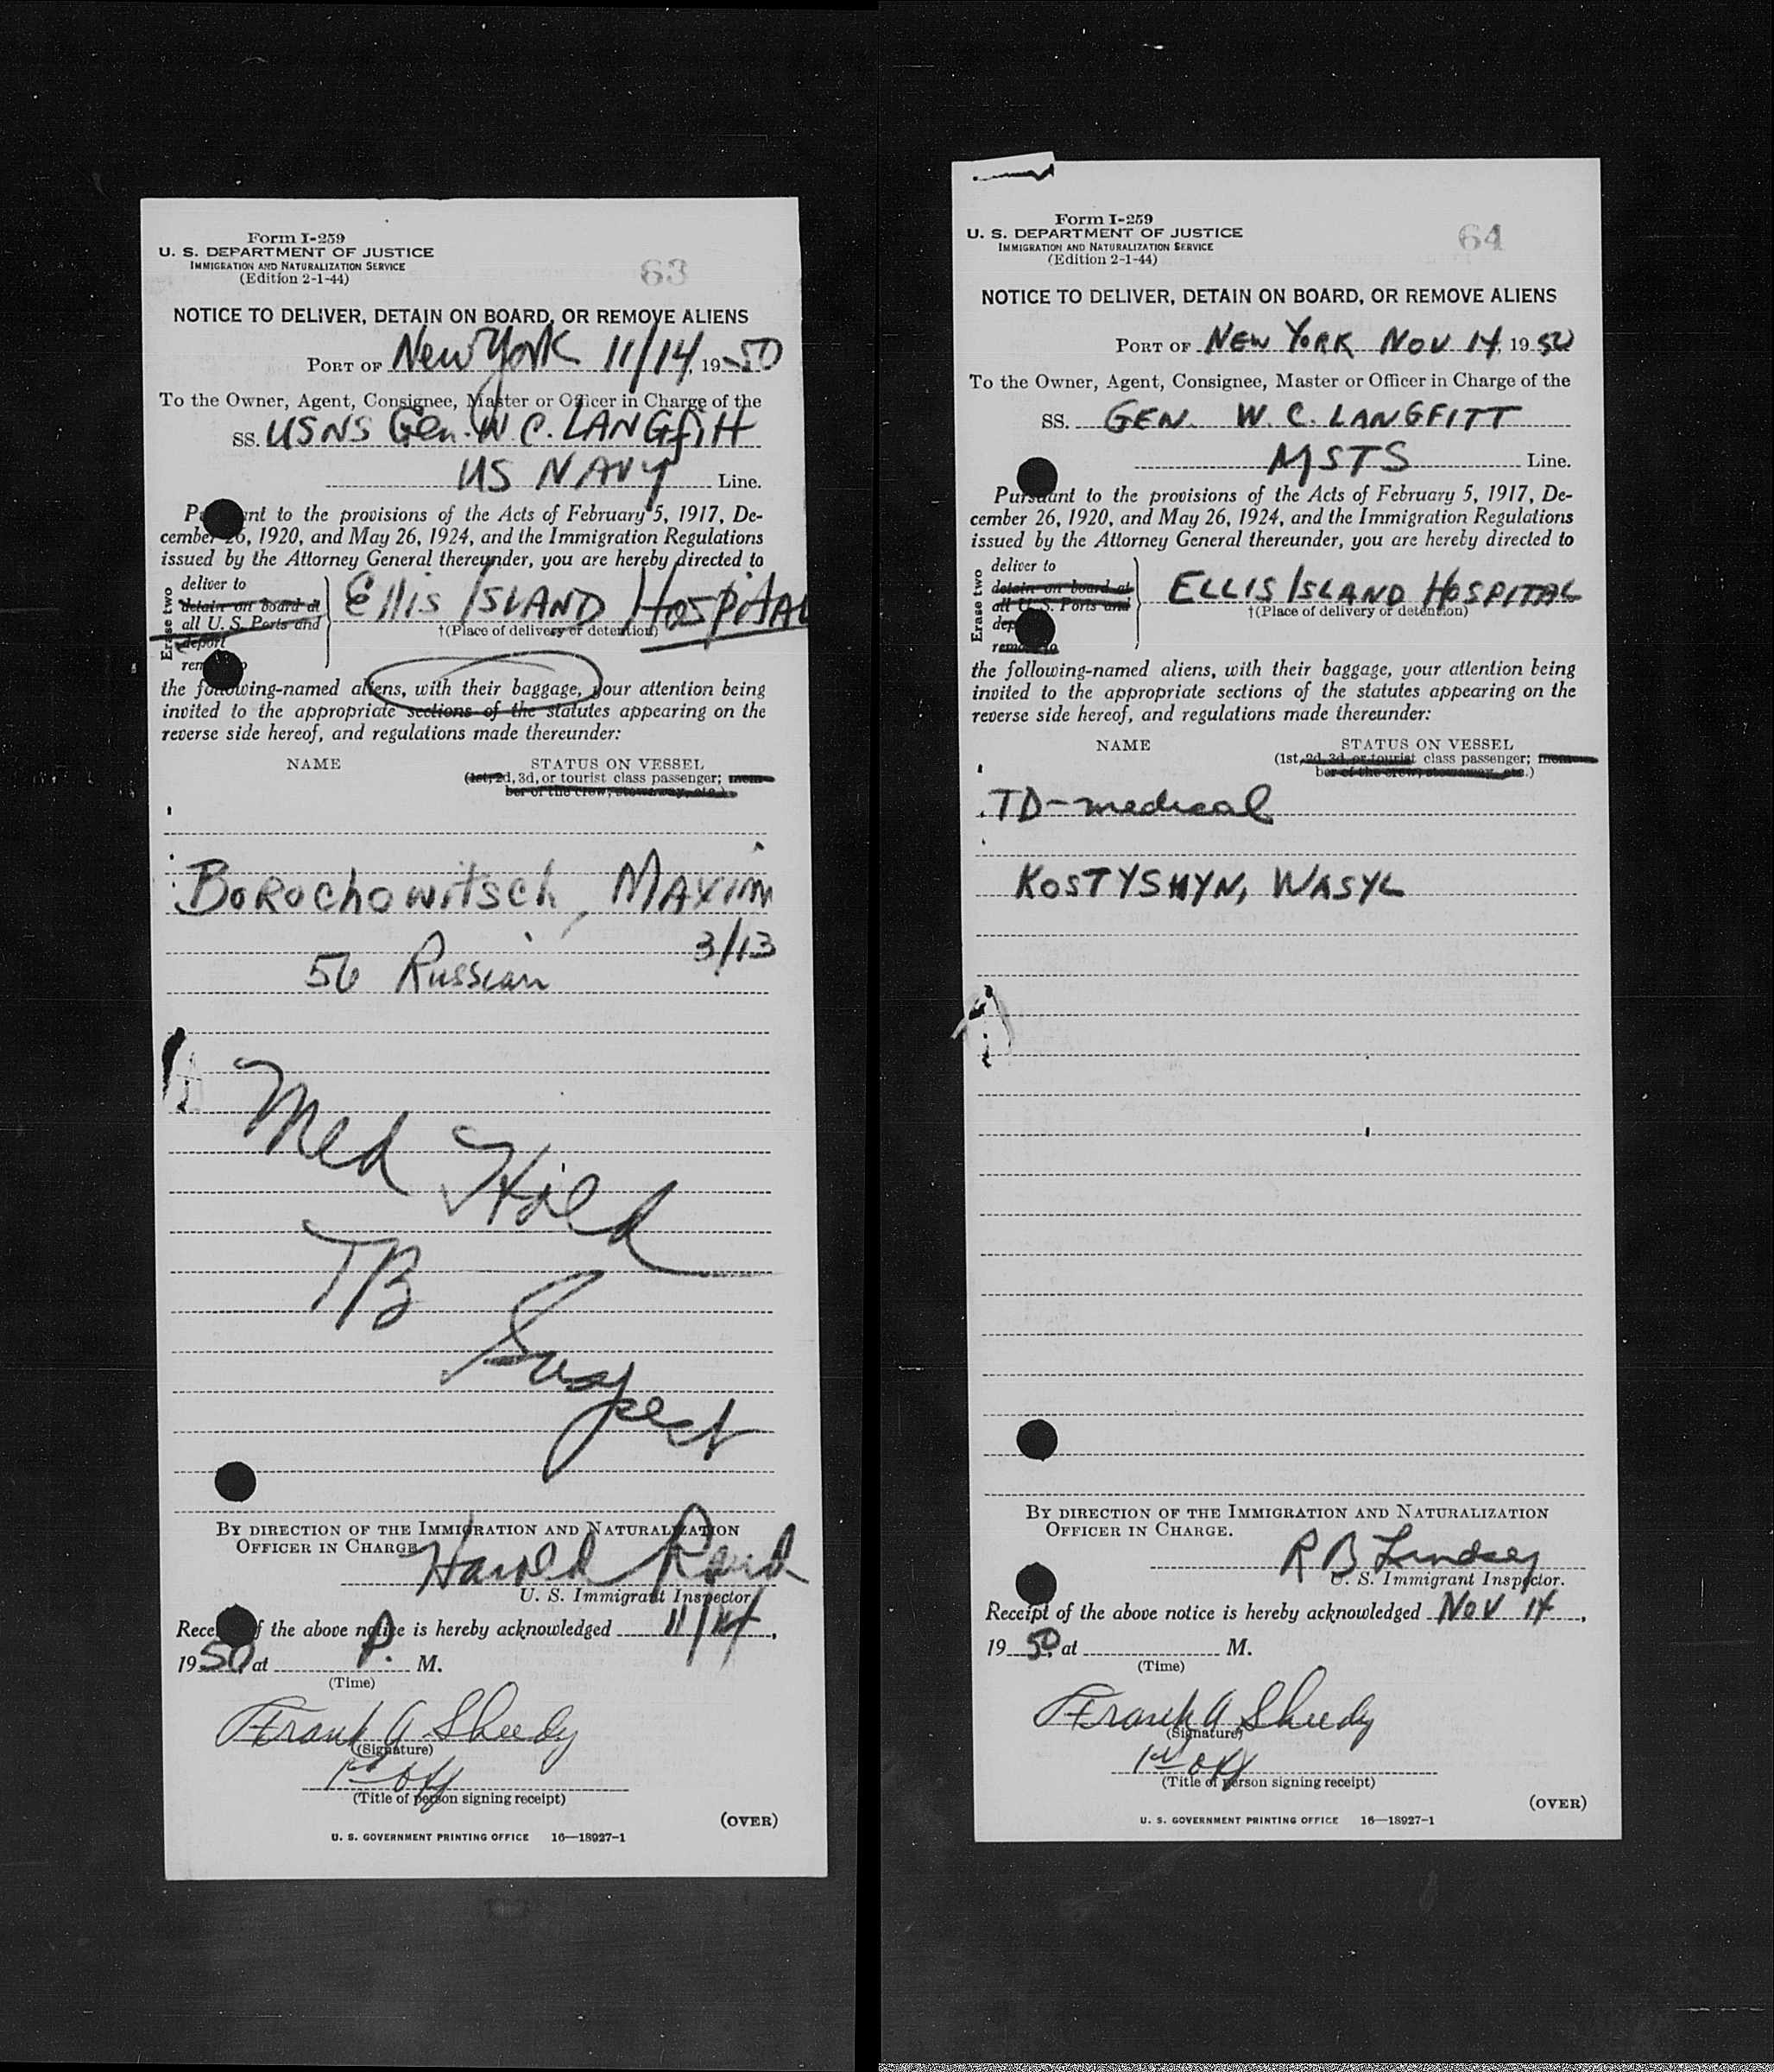 Form I-259
U. S. DEPARTMENT OF JUSTICE
IMMIGRATION AND NATURALIZATION SERVICE
(Edition 2-1-44)
63
NOTICE TO DELIVER, DETAIN ON BOARD, OR REMOVE ALIENS
PORT OF New York 11/14, 1950
To the Owner, Agent, Consignee, Master or Officer in Charge of the
SS. USNS Gen. W. C. LANGfitt
US NAVY Line.
Pursuant to the provisions of the Acts of February 5, 1917, De-
cember 26, 1920, and May 26, 1924, and the Immigration Regulations
issued by the Attorney General thereunder, you are hereby directed to
Erase two
deliver to
detain on board at
all U. S. Ports and
deport
remove to
Ellis ISLAND HospitAL
†(Place of delivery or detention)
the following-named aliens, with their baggage, your attention being
invited to the appropriate sections of the statutes appearing on the
reverse side hereof, and regulations made thereunder:
NAME STATUS ON VESSEL
(1st, 2d, 3d, or tourist class passenger; mem-
ber of the crew, stowaway, etc.)
Borochowitsch, Maxim
3/13
56 Russian
Med Hold
TB
Suspect
BY DIRECTION OF THE IMMIGRATION AND NATURALIZATION
OFFICER IN CHARGE.
Harold
U. S. Immigrant Inspector.
Receipt of the above notice is hereby acknowledged 11/14,
1950, at P. M.
(Time)
Frank A Sheedy
(Signature)
1st off
(Title of person signing receipt)
(OVER)
U. S. GOVERNMENT PRINTING OFFICE 16—18927-1
Form I-259
U. S. DEPARTMENT OF JUSTICE
IMMIGRATION AND NATURALIZATION SERVICE
(Edition 2-1-44)
64
NOTICE TO DELIVER, DETAIN ON BOARD, OR REMOVE ALIENS
PORT OF NEW YORK NOV 14, 1950
To the Owner, Agent, Consignee, Master or Officer in Charge of the
SS. GEN. W. C. LANGFITT
MSTS Line.
Pursuant to the provisions of the Acts of February 5, 1917, De-
cember 26, 1920, and May 26, 1924, and the Immigration Regulations
issued by the Attorney General thereunder, you are hereby directed to
Erase two
deliver to
detain on board at
all U. S. Ports and
deport
remove to
ELLIS ISLAND HOSPITAL
†(Place of delivery or detention)
the following-named aliens, with their baggage, your attention being
invited to the appropriate sections of the statutes appearing on the
reverse side hereof, and regulations made thereunder:
NAME STATUS ON VESSEL
(1st, 2d, 3d, or tourist class passenger; mem-
ber of the crew, stowaway, etc.)
TD-medical
KOSTYSHYN, WASYL
BY DIRECTION OF THE IMMIGRATION AND NATURALIZATION
OFFICER IN CHARGE.
R B Lindsey
U. S. Immigrant Inspector.
Receipt of the above notice is hereby acknowledged Nov 14,
1950, at M.
(Time)
Frank A Sheedy
(Signature)
1st off
(Title of person signing receipt)
(OVER)
U. S. GOVERNMENT PRINTING OFFICE 16—18927-1